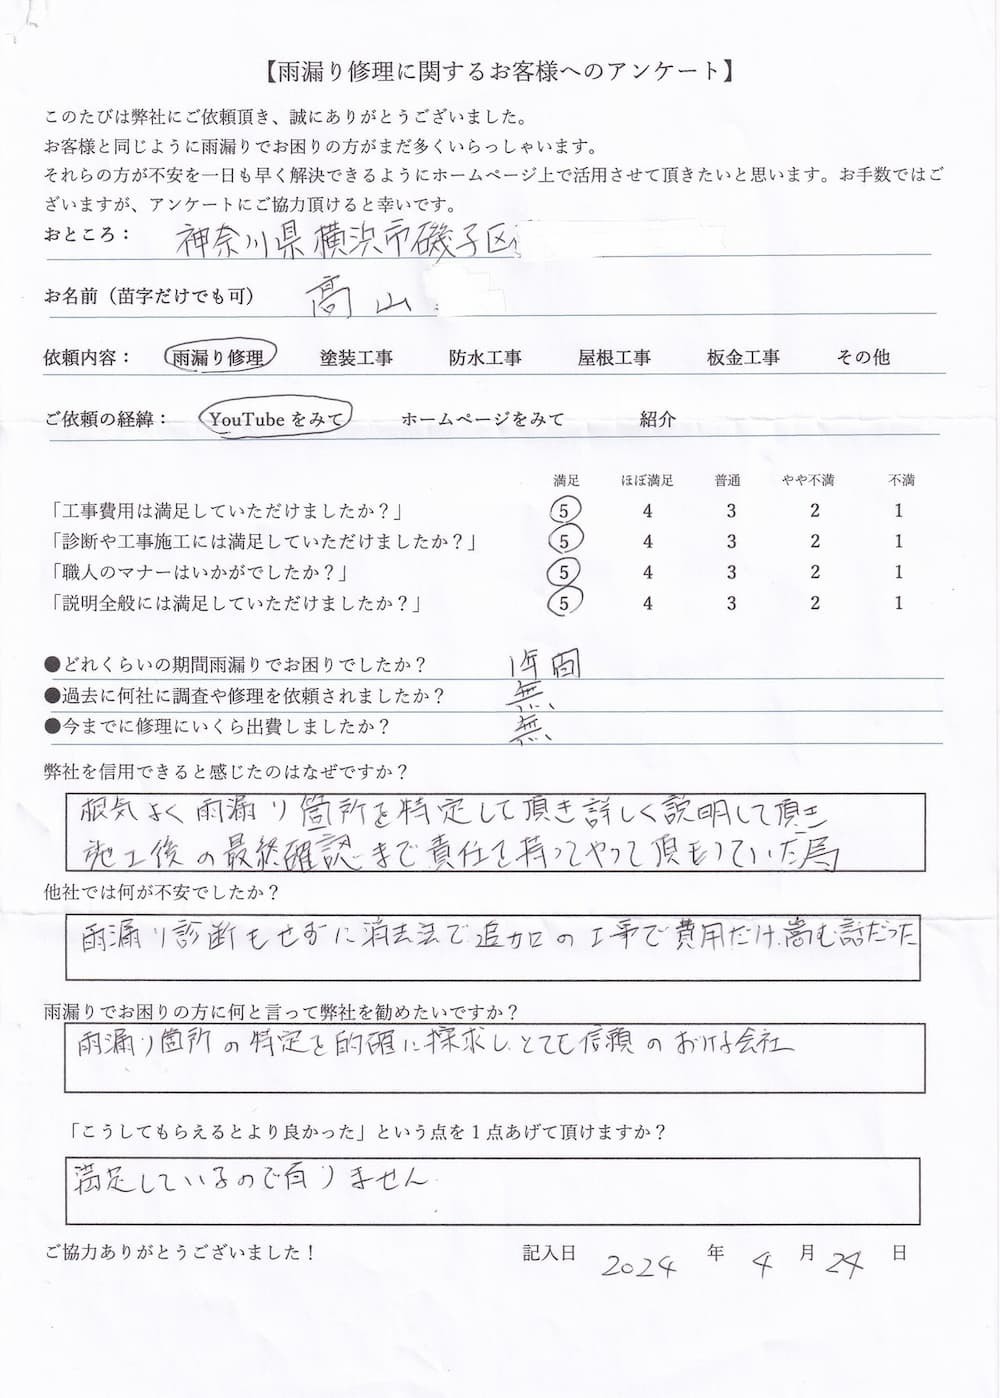 【雨漏り修理に関するお客様へのアンケート】
このたびは弊社にご依頼頂き、誠にありがとうございました。
お客様と同じように雨漏りでお困りの方がまだ多くいらっしゃいます。
それらの方が不安を一日も早く解決できるようにホームページ上で活用させて頂きたいと思います。お手数ではご
ざいますが、アンケートにご協力頂けると幸いです。
おところ： 神奈川県横浜市磯子区
お名前（苗字だけでも可） 髙山
依頼内容： 雨漏り修理 塗装工事 防水工事 屋根工事 板金工事 その他
ご依頼の経緯： YouTubeをみて ホームページをみて 紹介
満足 ほぼ満足 普通 やや不満 不満
「工事費用は満足していただけましたか？」 5 4 3 2 1
「診断や工事施工には満足していただけましたか？」 5 4 3 2 1
「職人のマナーはいかがでしたか？」 5 4 3 2 1
「説明全般には満足していただけましたか？」 5 4 3 2 1
●どれくらいの期間雨漏りでお困りでしたか？ 1年間
●過去に何社に調査や修理を依頼されましたか？ 無
●今までに修理にいくら出費しましたか？ 無
弊社を信用できると感じたのはなぜですか？
根気よく雨漏り箇所を特定して頂き詳しく説明して頂き
施工後の最終確認まで責任を持ってやって頂もらていた為
他社では何が不安でしたか？
雨漏り診断もせずに消去法で追加の工事で費用だけ嵩む話だった
雨漏りでお困りの方に何と言って弊社を勧めたいですか？
雨漏り箇所の特定を的確に探求し、とても信頼のおける会社
「こうしてもらえるとより良かった」という点を１点あげて頂けますか？
満足しているので有りません
ご協力ありがとうございました！ 記入日 2024 年 4 月 24 日